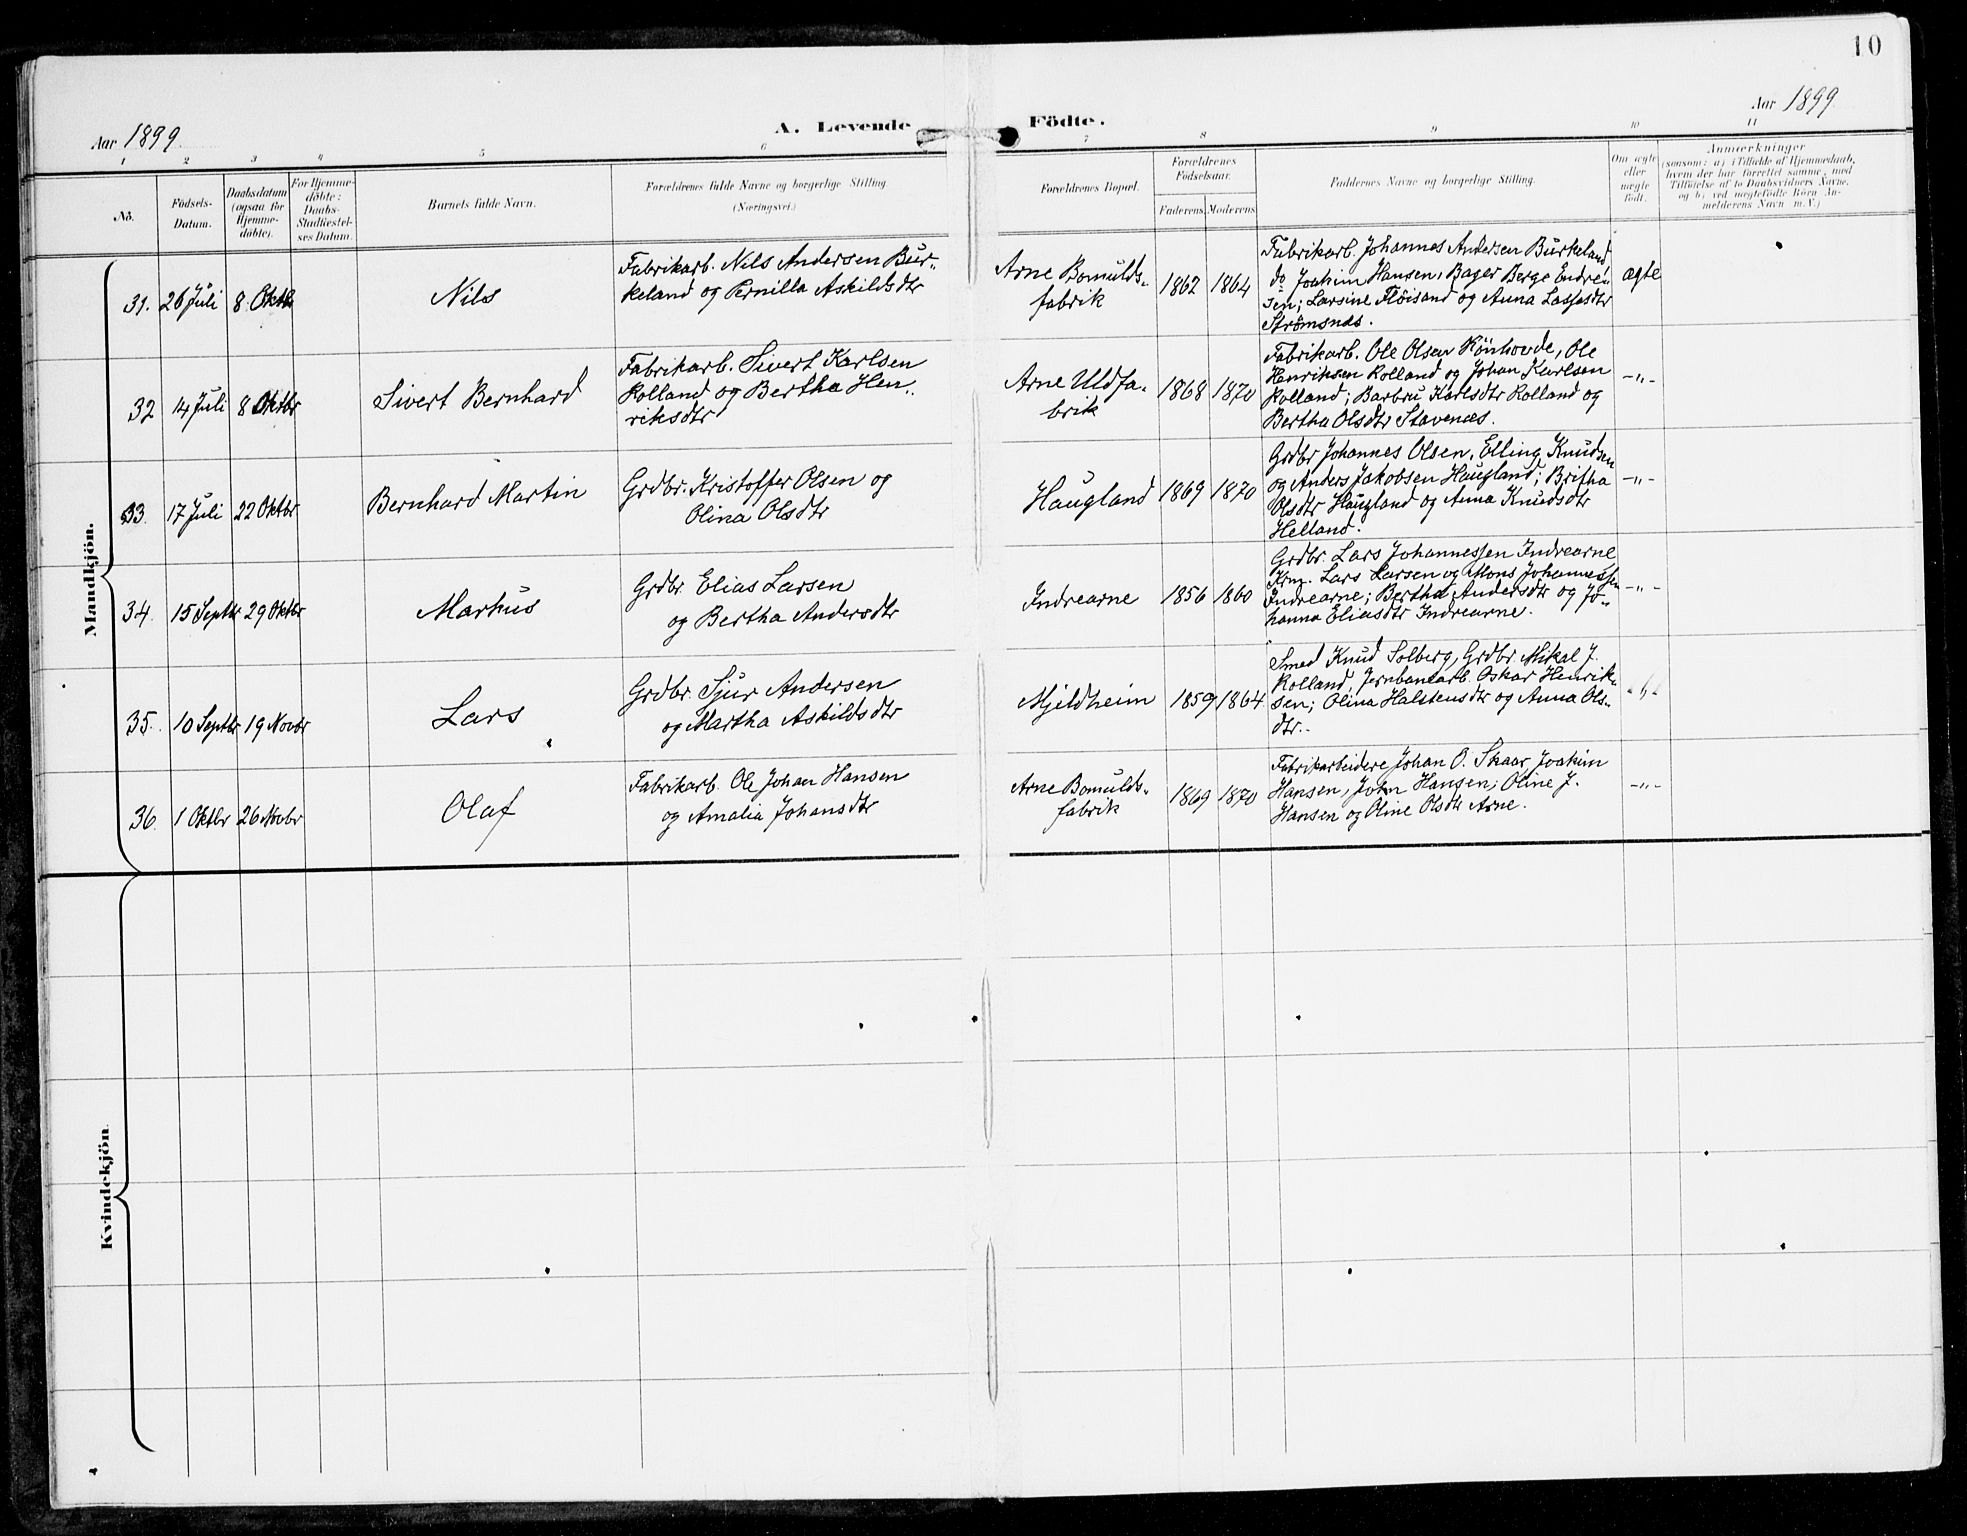 10
Aar 1899
A. Levende
Födte.
Aar 1899
1 2 3 4 5 6 7 8 9 10 11
No.
Födsels-
Datum.
Daabsdatum
(ogsaa for
Hjemme-
döbte).
For Hjemme-
döbte:
Daabs-
Stadfæstel-
ses Datum.
Barnets fulde Navn.
Forældrenes fulde Navne og borgerlige Stilling
(Næringsvei.)
Forældrenes Bopæl.
Forældrenes
Födselsaar.
Faderens Moderens
Faddernes Navne og borgerlige Stilling.
Om ægte
eller
uægte
födt.
Anmærkninger
(saasom: a) i Tilfælde af Hjemmedaab,
hvem der har forrettet samme, med
Tilföielse af to Daabsvidners Navne,
og b) ved uægtefödte Börn An-
melderens Navn m. V.)
Mandkjön.
31. 26 Juli 8 Oktb
Nils
Fabrikarb. Nils Andersen Bur-
keland og Pernilla Askildsdtr
Arne Bomulds-
fabrik
1862 1864
Fabrikarb. Johannes Andersen Burkeland
do Joakim Hansen, Bager Berge Endre-
sen; Larsine Flöisand og Anna Lassesdtr
Strömsnes.
ægte
32 14 Juli 8 Oktbr
Sivert Bernhard
Fabrikarb. Sivert Karlsen
Rolland og Bertha Hen-
riksdtr
Arne Uldfa-
brik
1868 1870
Fabrikarb. Ole Olsen Rönhovde, Ole
Henriksen Rolland og Johan Karlsen
Rolland; Barbru Karlsdtr Rolland og
Bertha Olsdtr Stavenæs.
-"-
33. 17 Juli 22 Oktbr
Bernhard Martin
Grdbr. Kristoffer Olsen og
Olina Olsdtr
Haugland
1869 1870
Grdbr Johannes Olsen, Elling Knudsen
og Anders Jakobsen Haugland; Britha
Olsdtr Haugland og Anna Knudsdtr
Helland.
-"-
34. 15 Septbr 29 Oktbr
Markus
Grdbr. Elias Larsen
og Bertha Andersdtr
Indrearne
1856 1860
Grdbr. Lars Johannessen Indrearne
Krm. Lars Larsen og Mons Johannessen
Indrearne; Bertha Andersdtr og Jo-
hanna Eliasdtr Indrearne.
-"-
35. 10 Septbr 19 Novbr
Lars
Grdbr Sjur Andersen
og Martha Askildsdtr
Mjeldheim
1859 1864
Smed Knud Solberg, Grdbr. Mikal J.
Rolland, Jernbanearb. Oskar Henrik-
sen; Olina Halstensdtr og Anna Ols-
dtr.
-"-
36. 1 Oktbr 26 Novbr
Olaf
Fabrikarb. Ole Johan Hansen
og Amalia Johansdtr
Arne Bomulds-
fabrik
1869 1870
Fabrikarbeidere Johan O. Skaar, Joakim
Hansen, John Hansen; Oline J.
Hansen og Oline Olsdtr Arne.
-"-
Kvindekjön.